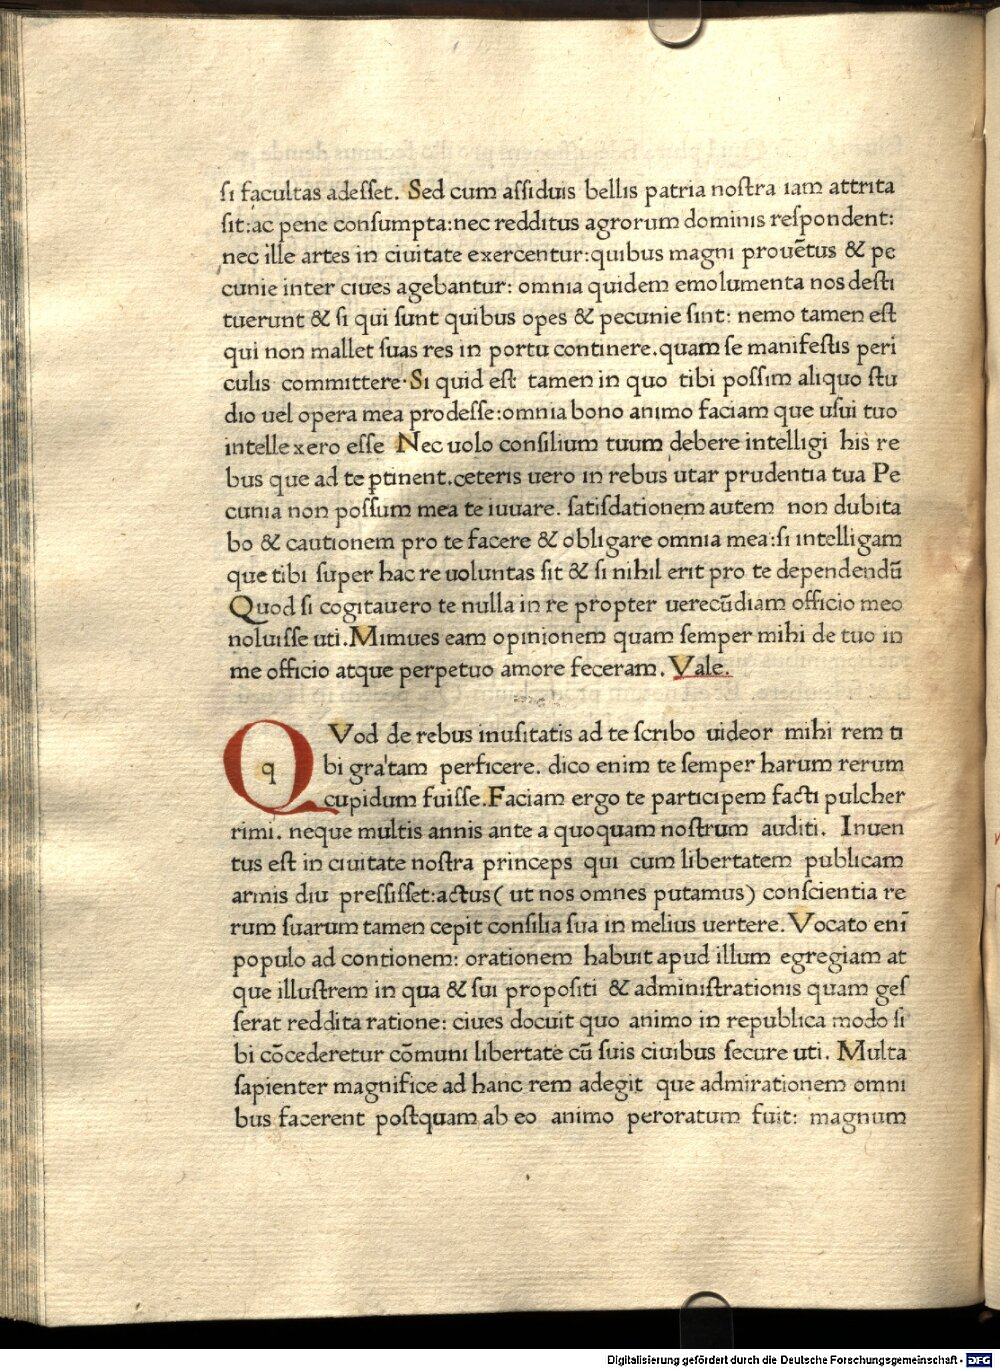 si facultas adesset. Sed cum assiduis bellis patria nostra iam attrita
sit:ac pene consumpta:nec redditus agrorum dominis respondent:
nec ille artes in ciuitate exercentur:quibus magni prouētus & pe
cunie inter ciues agebantur: omnia quidem emolumenta nos desti
tuerunt & si qui sunt quibus opes & pecunie sint: nemo tamen est
qui non mallet suas res in portu continere.quam se manifestis peri
culis committere·Si quid est tamen in quo tibi possim aliquo stu
dio uel opera mea prodesse:omnia bono animo faciam que usui tuo
intellexero esse Nec uolo consilium tuum debere intelligi his re
bus que ad te ꝑtinent.ceteris uero in rebus utar prudentia tua Pe
cunia non possum mea te iuuare. satisdationem autem non dubita
bo & cautionem pro te facere & obligare omnia mea:si intelligam
que tibi super hac re uoluntas sit & si nihil erit pro te dependendū
Quod si cogitauero te nulla in re propter uerecūdiam officio meo
noluisse uti.Mimues eam opinionem quam semper mihi de tuo in
me officio atque perpetuo amore feceram. Vale.
QVod de rebus inusitatis ad te scribo uideor mihi rem ti
bi gratam perficere. dico enim te semper harum rerum
cupidum fuisse.Faciam ergo te participem facti pulcher
rimi. neque multis annis ante a quoquam nostrum auditi. Inuen
tus est in ciuitate nostra princeps qui cum libertatem publicam
armis diu pressisset:actus( ut nos omnes putamus) conscientia re
rum suarum tamen cepit consilia sua in melius uertere.Vocato enī
populo ad contionem: orationem habuit apud illum egregiam at
que illustrem in qua & sui propositi & administrationis quam ges
serat reddita ratione: ciues docuit quo animo in republica modo si
bi cōcederetur cōmuni libertate cū suis ciuibus secure uti. Multa
sapienter magnifice ad hanc rem adegit que admirationem omni
bus facerent postquam ab eo animo peroratum fuit: magnum
Digitalisierung gefördert durch die Deutsche Forschungsgemeinschaft - DFG